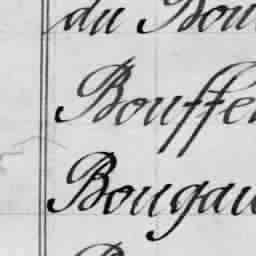 du Bou
Bouffe
Bougau